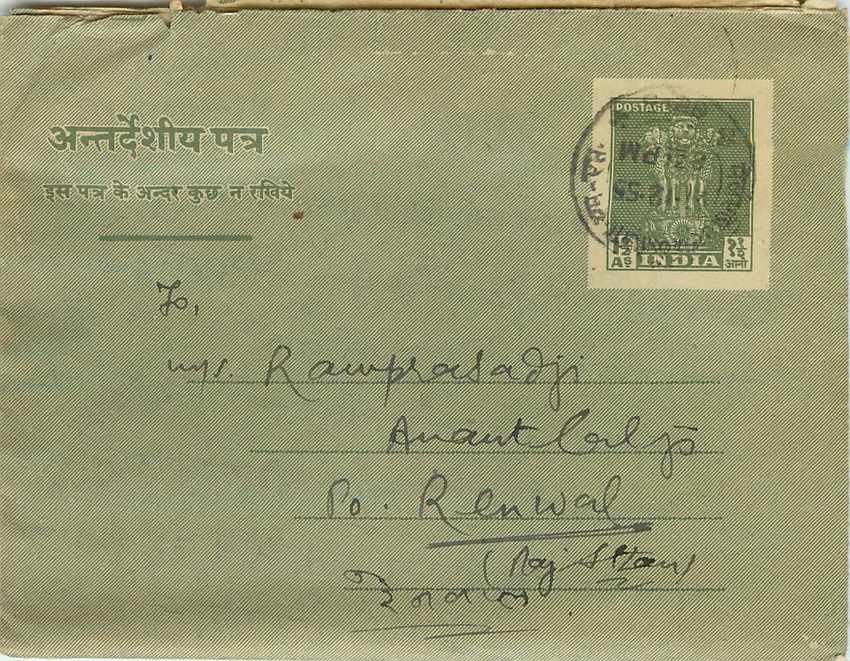 अन्तर्देशीय पत्र
इस पत्र के अन्दर कुछ न रखिये
POSTAGE
1½ As INDIA १½ आना
To,
M/s. Ramprasadji
Anantlalji
Po. Renwal
(Rajsthan)
रेनवाल